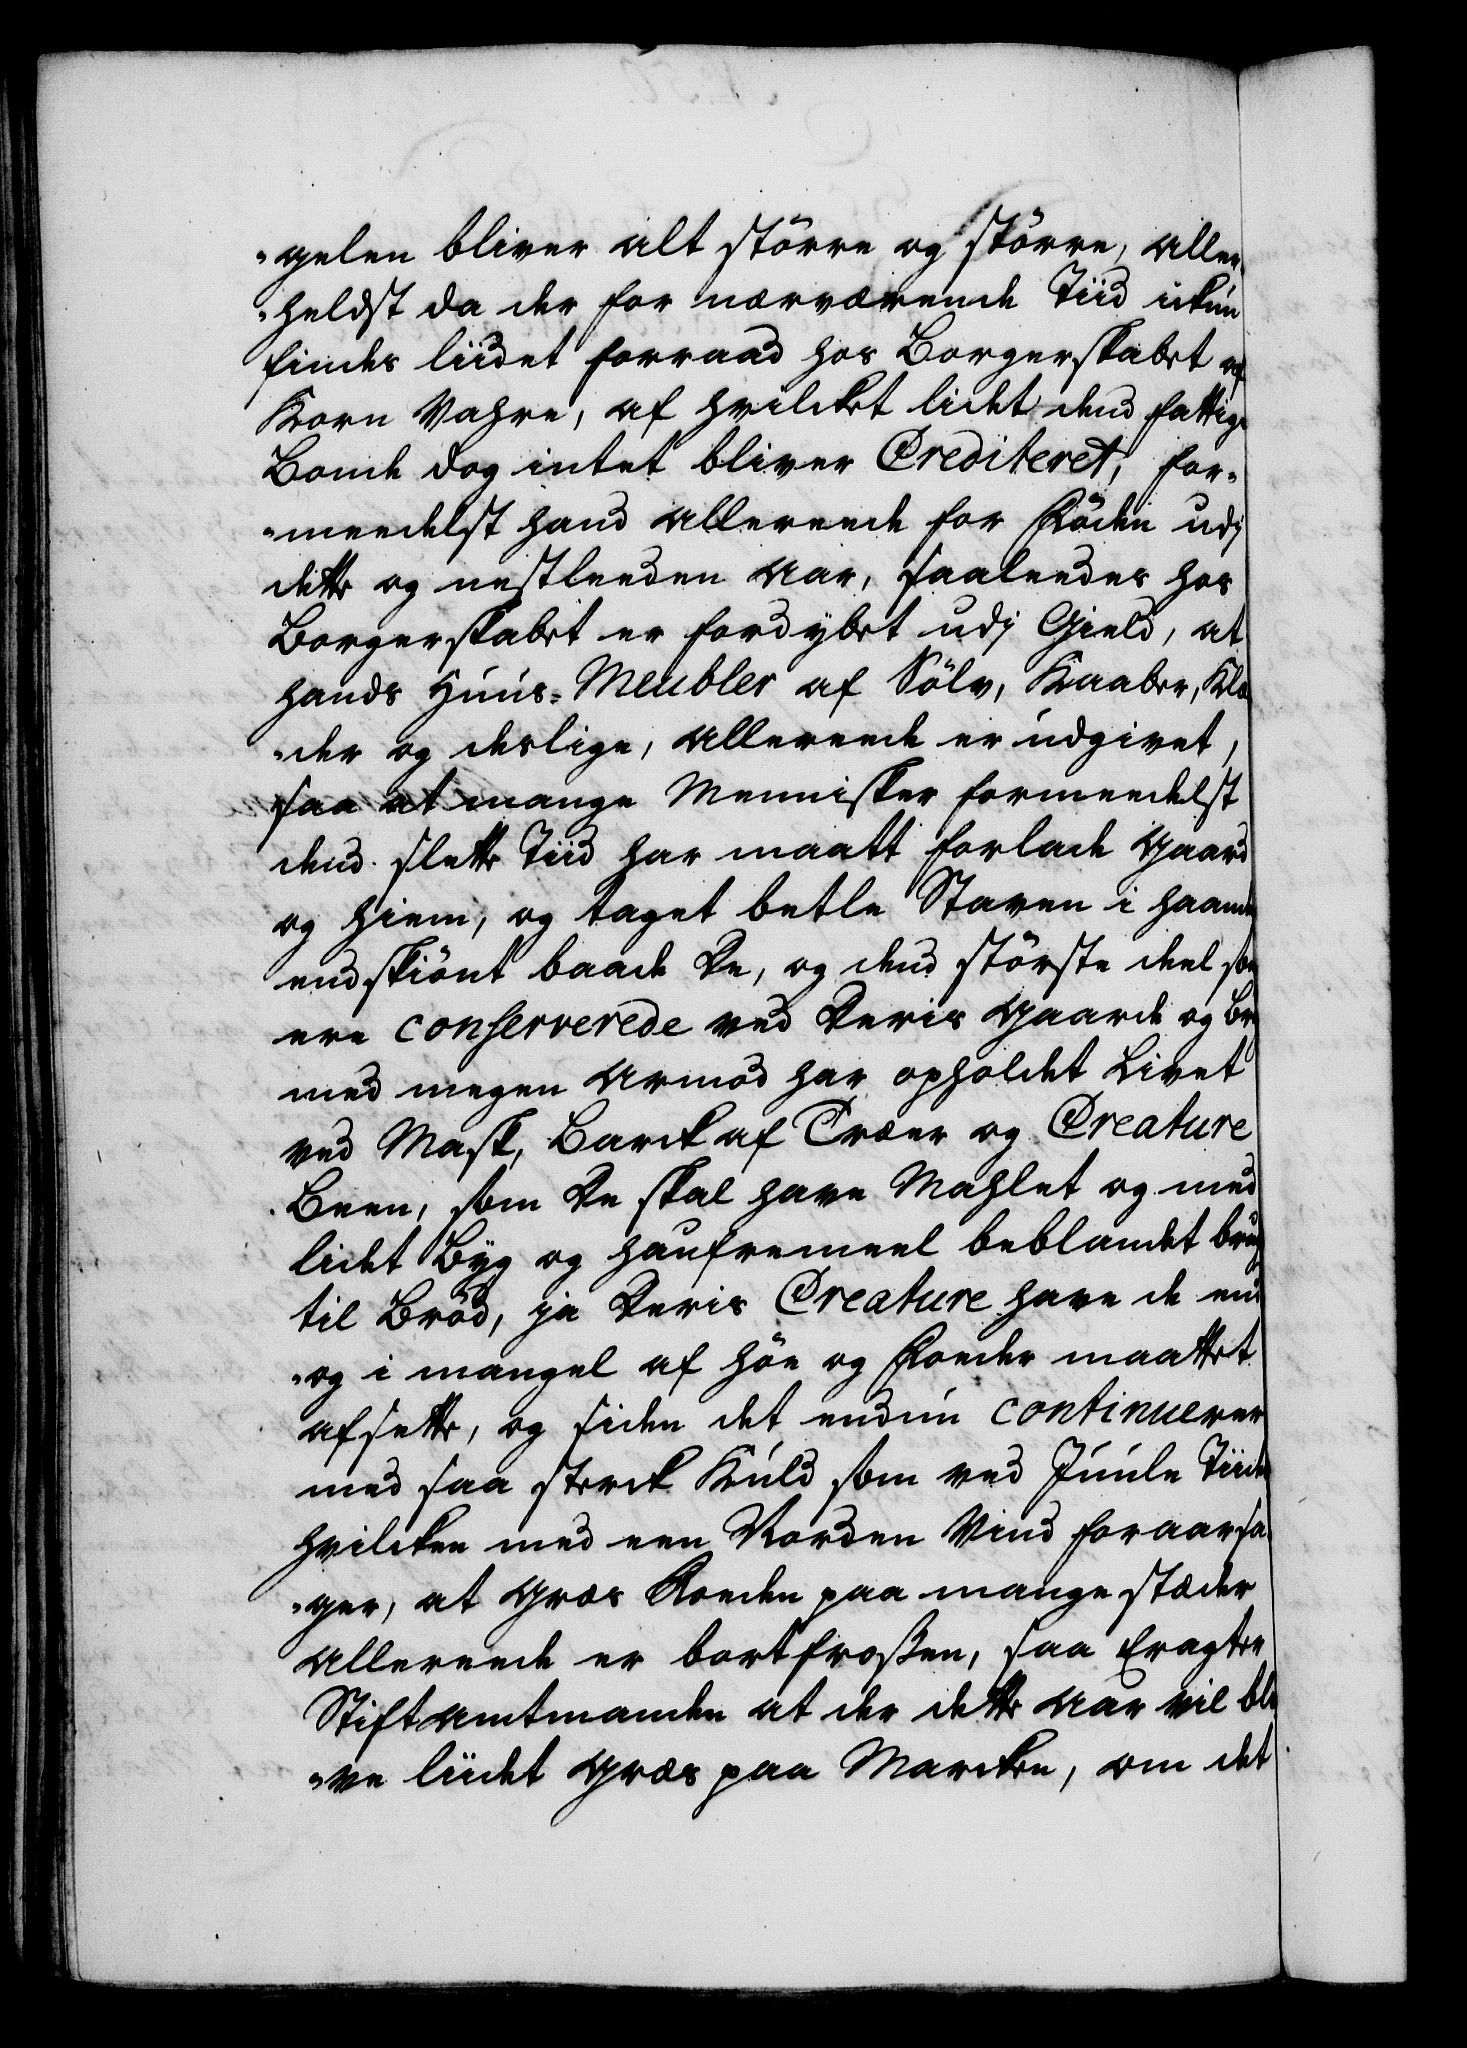 "gelen bliver alt större og större, aller
"heldst da der for nærværende Tiid ickun
findes liidet forraad hos Borgerskabet af
Korn Vahre, af hvilcket lidet dend fattige
Bonde dog intet bliver Crediteret, for-
"meedelst hand allereede for Föden udj
dette og nestleeden Aar, saaleedes hos
Borgerskabet er fordybet udj Gield, at
hands Huus-Meubler af Sölv, Kaaber, Klæ
"der og deslige, allereede er udgivet,
saa at mange Mennisker formeedelst
dend slette Tiid har maatt forlade Gaard
og Hiem, og taget betle Staven i Haanden
endskiönt baade De, og dend störste deel som
ere conserverede ved Deris Gaarde og Br
med megen Armod har opholdet Livet
ved Mask, Barck af Træer og Creature
Been, som De skal have Mahlet og med
lidet Byg og Haufremeel beblandet brug
til Bröd, ja Deris Creature have de end
"og i mangel af Höe og Foeder maattet
afsette, og siden det endnu continuerer
med saa sterck Kuld som ved Juule Tiiden
hvilcken med een Norden Vind foraarsa
"ger, at Græs Roeden paa mange stæder
allereede er bortfrossen, saa Eragter
Stiftamtmanden at der dette Aar vil bli
"ve liidet Græs paa Marcken, om det